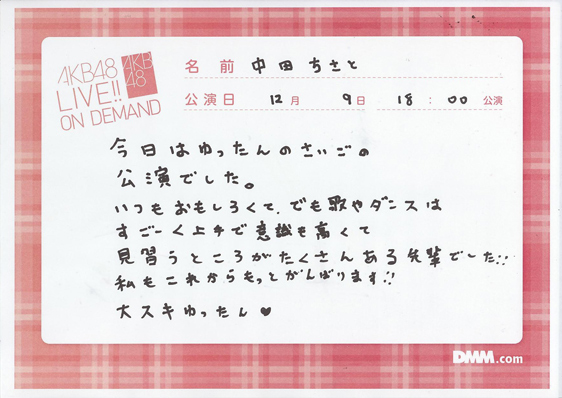 AKB48
LIVE!!
ON DEMAND
AKB
48
名前 中田ちさと
公演日 12月 9日 18:00 公演
今日はゆったんのさいごの
公演でした。
いつもおもしろくて、でも歌やダンスは
すごーく上手で意識も高くて
見習うところがたくさんある先輩でした!!
私もこれからもっとがんばります!!
大スキゆったん♥
DMM.com